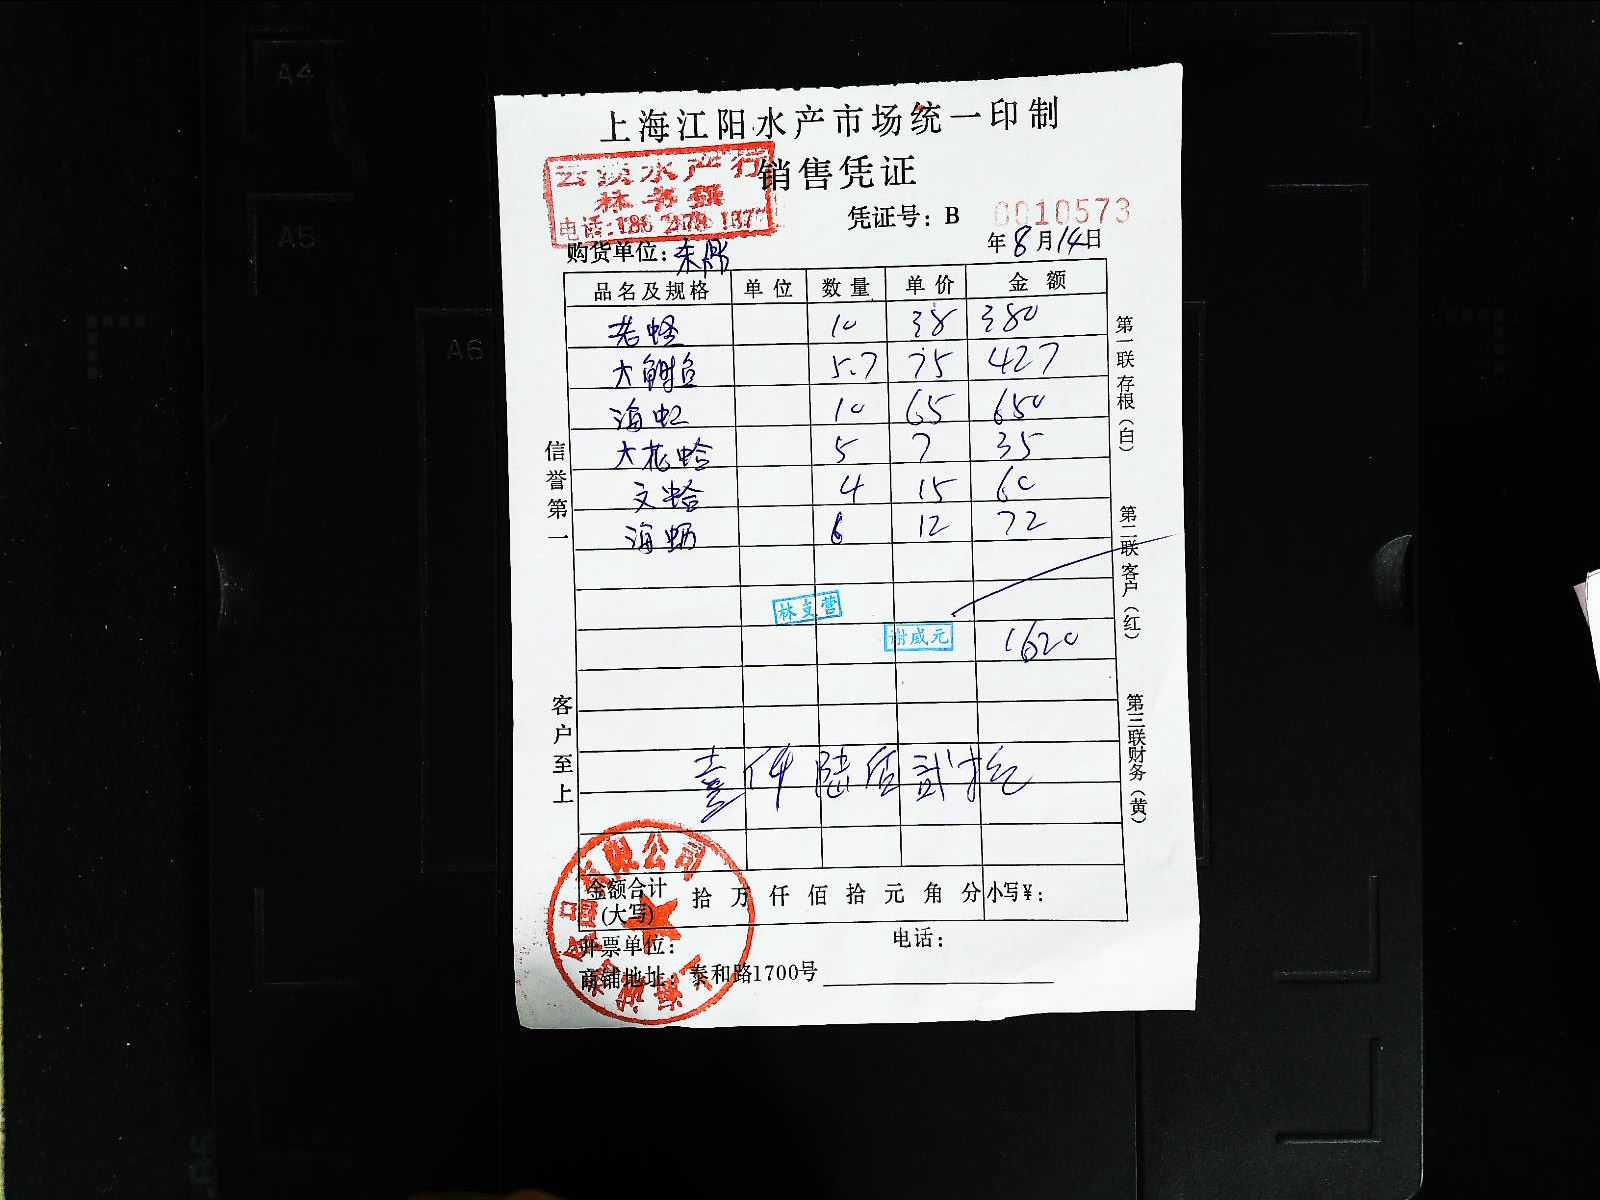 A4
A5
A6
上海江阳水产市场统一印制
销售凭证
云溪水产行
林书强
电话:186 2178 137
凭证号：B 0010573
购货单位：
年8月14日
品名及规格 单位 数量 单价 金额
老蛏 10 38 380
大鲍 5.7 75 427
海虹 10 65 650
大花蛤 5 7 35
文蛤 4 15 60
海蛎 6 12 72
林支营
谢威元
1620
壹仟陆佰贰拾
金额合计(大写) 拾万仟佰拾元角分 小写¥：
开票单位： 电话：
商铺地址：泰和路1700号
信誉第一
客户至上
第一联存根(白)
第二联客户(红)
第三联财务(黄)
有限公司